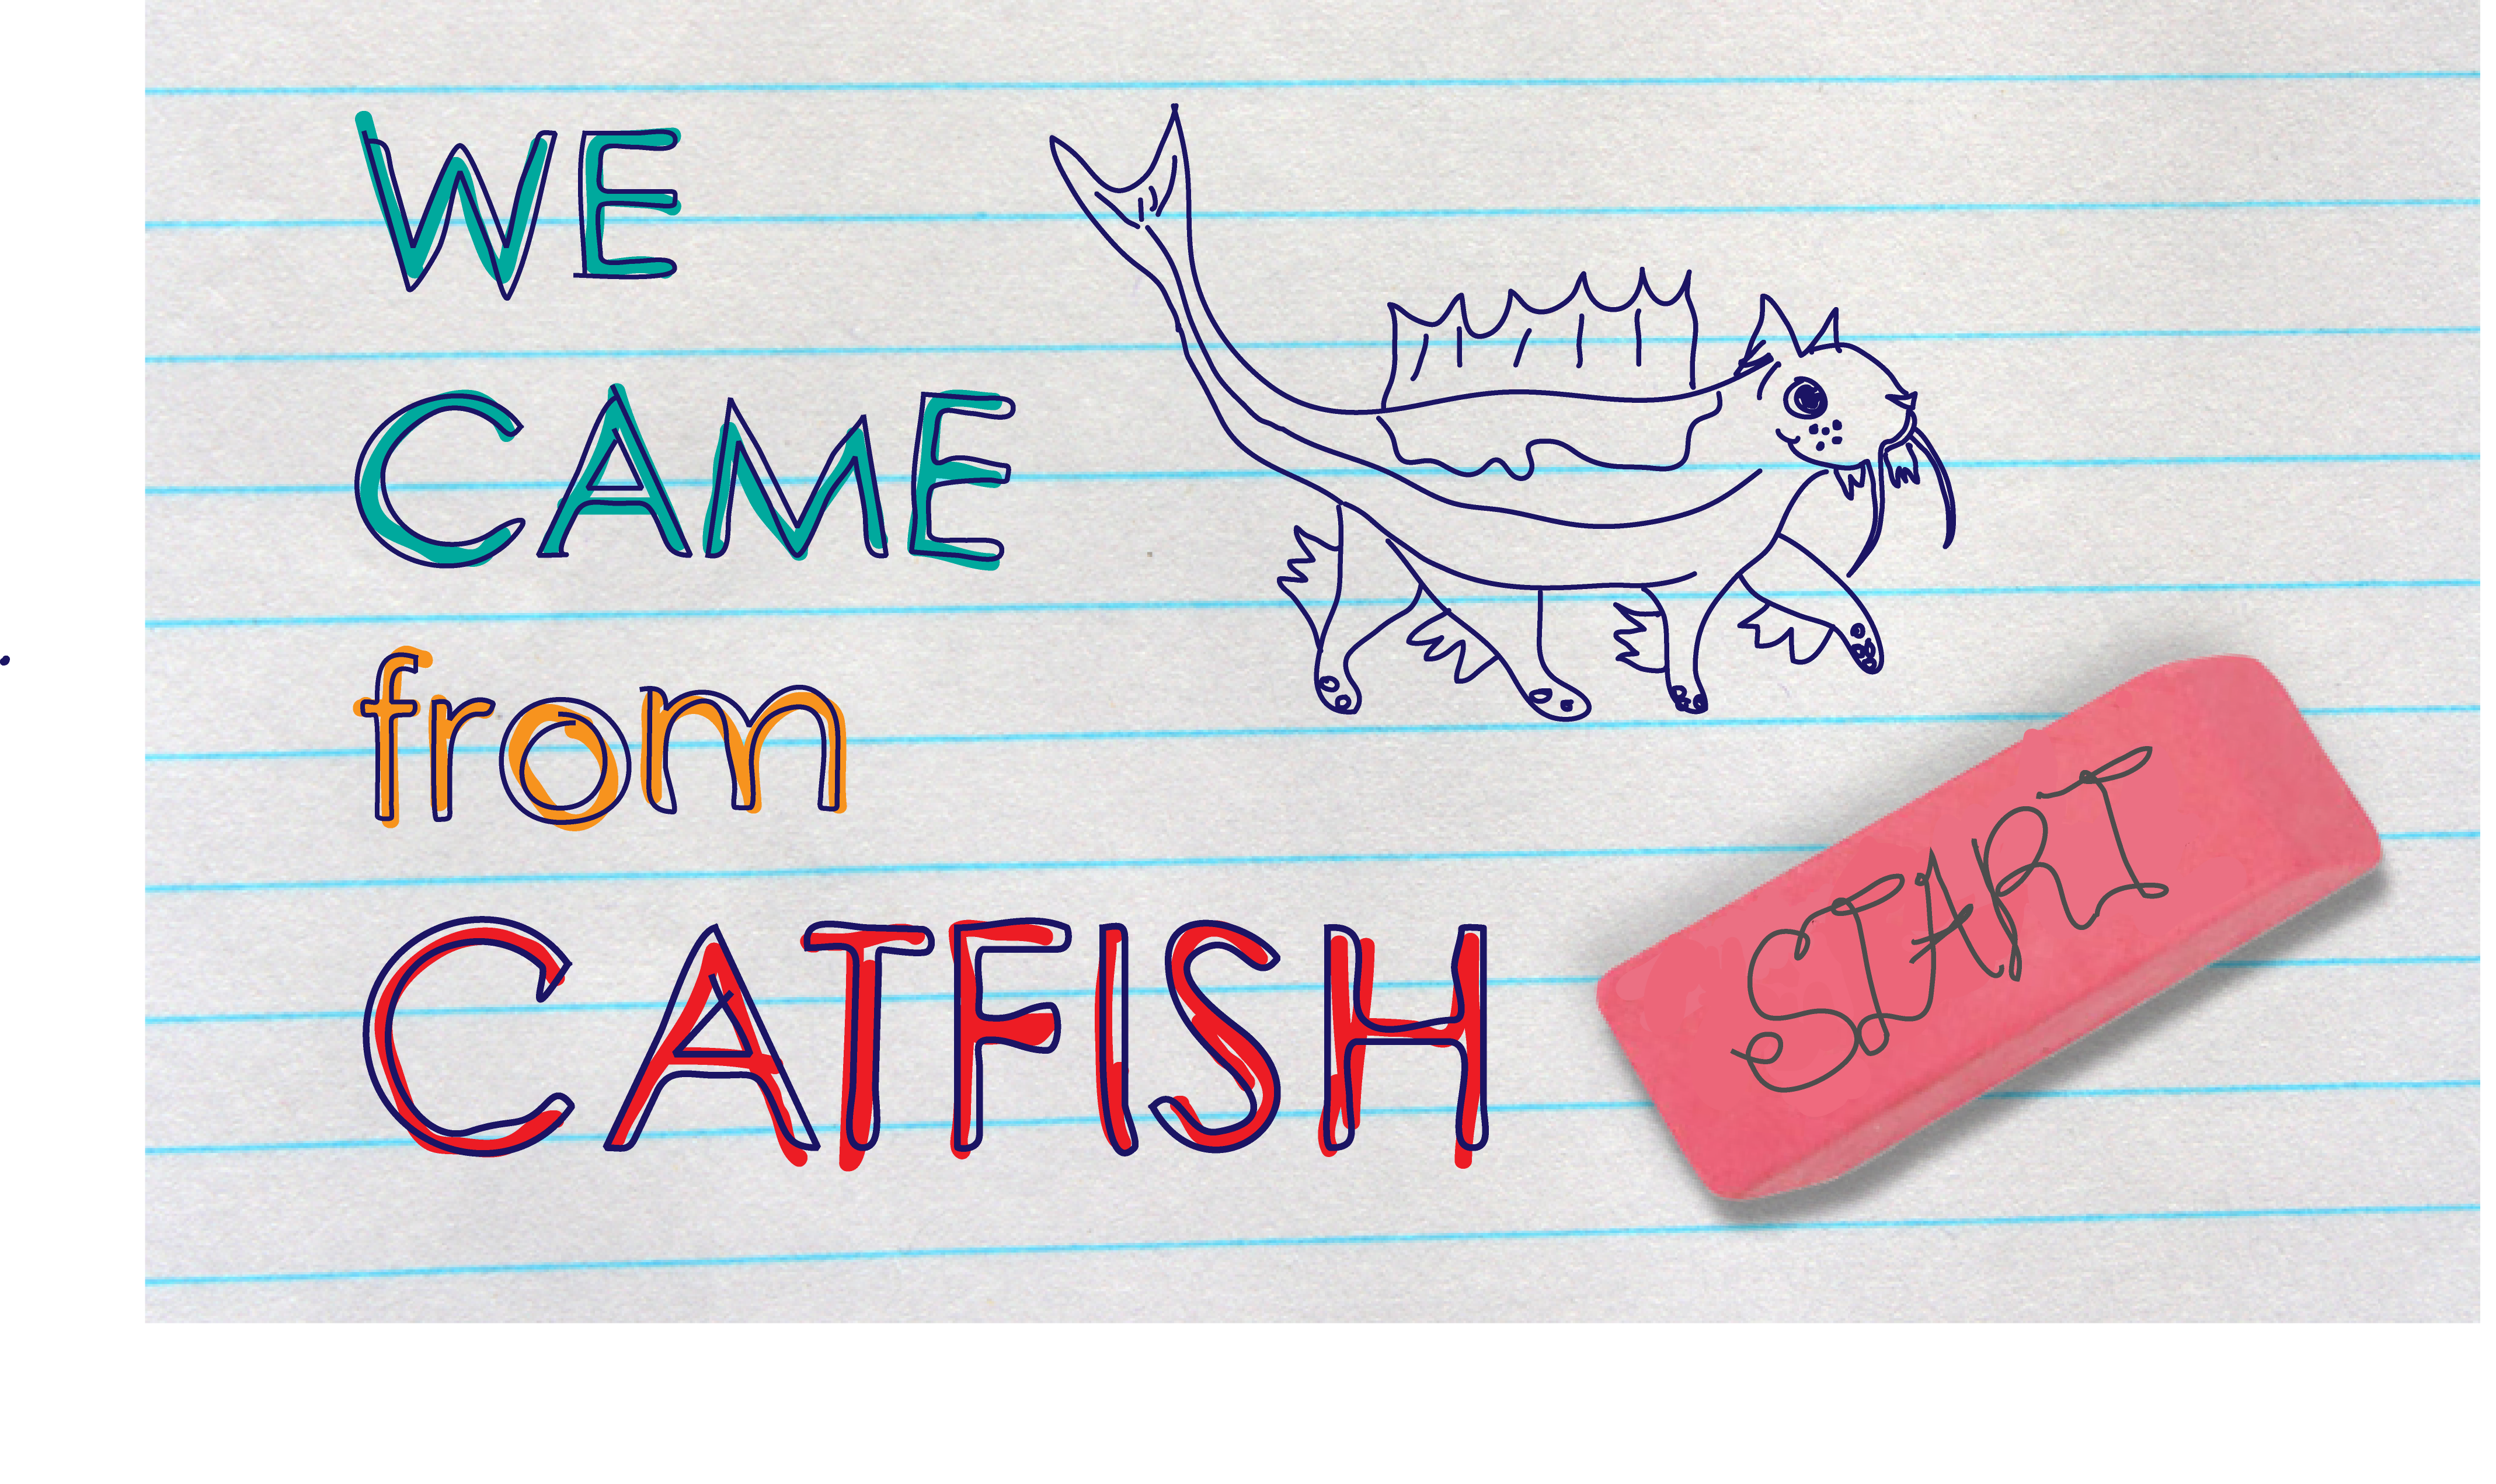 WE
CAME
from
CATFISH
START